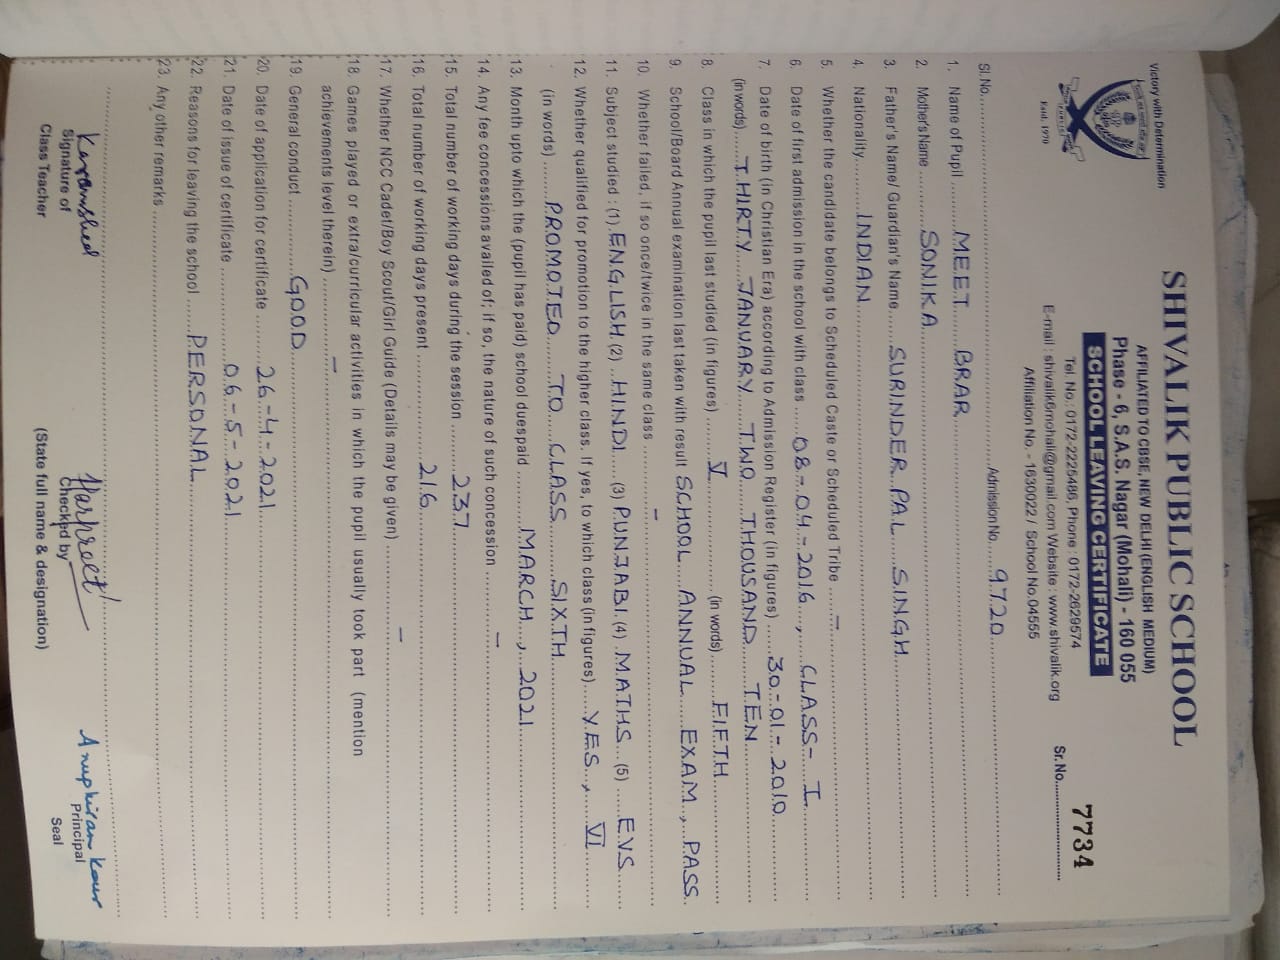 Victory with Determination
Estd. 1970
SHIVALIK PUBLIC SCHOOL
AFFILIATED TO CBSE, NEW DELHI (ENGLISH MEDIUM)
Phase - 6, S.A.S. Nagar (Mohali) - 160 055
SCHOOL LEAVING CERTIFICATE
Tel. No : 0172-2225486, Phone : 0172-2629574
E-mail : shivalik6mohali@gmail.com Website : www.shivalik.org
Affiliation No - 1630022 / School No.04555
Sr.No. 7734
Sl.No. Admission No. 9720
1. Name of Pupil MEET BRAR
2. Mother's Name SONIKA
3. Father's Name/ Guardian's Name SURINDER PAL SINGH
4. Nationality INDIAN
5. Whether the candidate belongs to Scheduled Caste or Scheduled Tribe –
6. Date of first admission in the school with class 08-04-2016, CLASS- I
7. Date of birth (in Christian Era) according to Admission Register (in figures) 30-01-2010
(in words) THIRTY JANUARY TWO THOUSAND TEN
8. Class in which the pupil last studied (in figures) V (in words) FIFTH
9. School/Board Annual examination last taken with result SCHOOL ANNUAL EXAM, PASS
10. Whether failed, if so once/twice in the same class –
11. Subject studied : (1) ENGLISH (2) HINDI (3) PUNJABI (4) MATHS (5) EVS
12. Whether qualified for promotion to the higher class. If yes, to which class (in figures) YES, VI
(in words) PROMOTED TO CLASS SIXTH
13. Month upto which the (pupil has paid) school duespaid MARCH, 2021
14. Any fee concessions availed of; if so, the nature of such concession –
15. Total number of working days during the session 237
16. Total number of working days present 216
17. Whether NCC Cadet/Boy Scout/Girl Guide (Details may be given) –
18. Games played or extra/curricular activities in which the pupil usually took part (mention
achievements level therein) –
19. General conduct GOOD
20. Date of application for certificate 26-4-2021
21. Date of issue of certificate 06-5-2021
22. Reasons for leaving the school PERSONAL
23. Any other remarks
Harpreet
Anupkiran Kaur
Signature of
Class Teacher
Checked by
(State full name & designation)
Principal
Seal